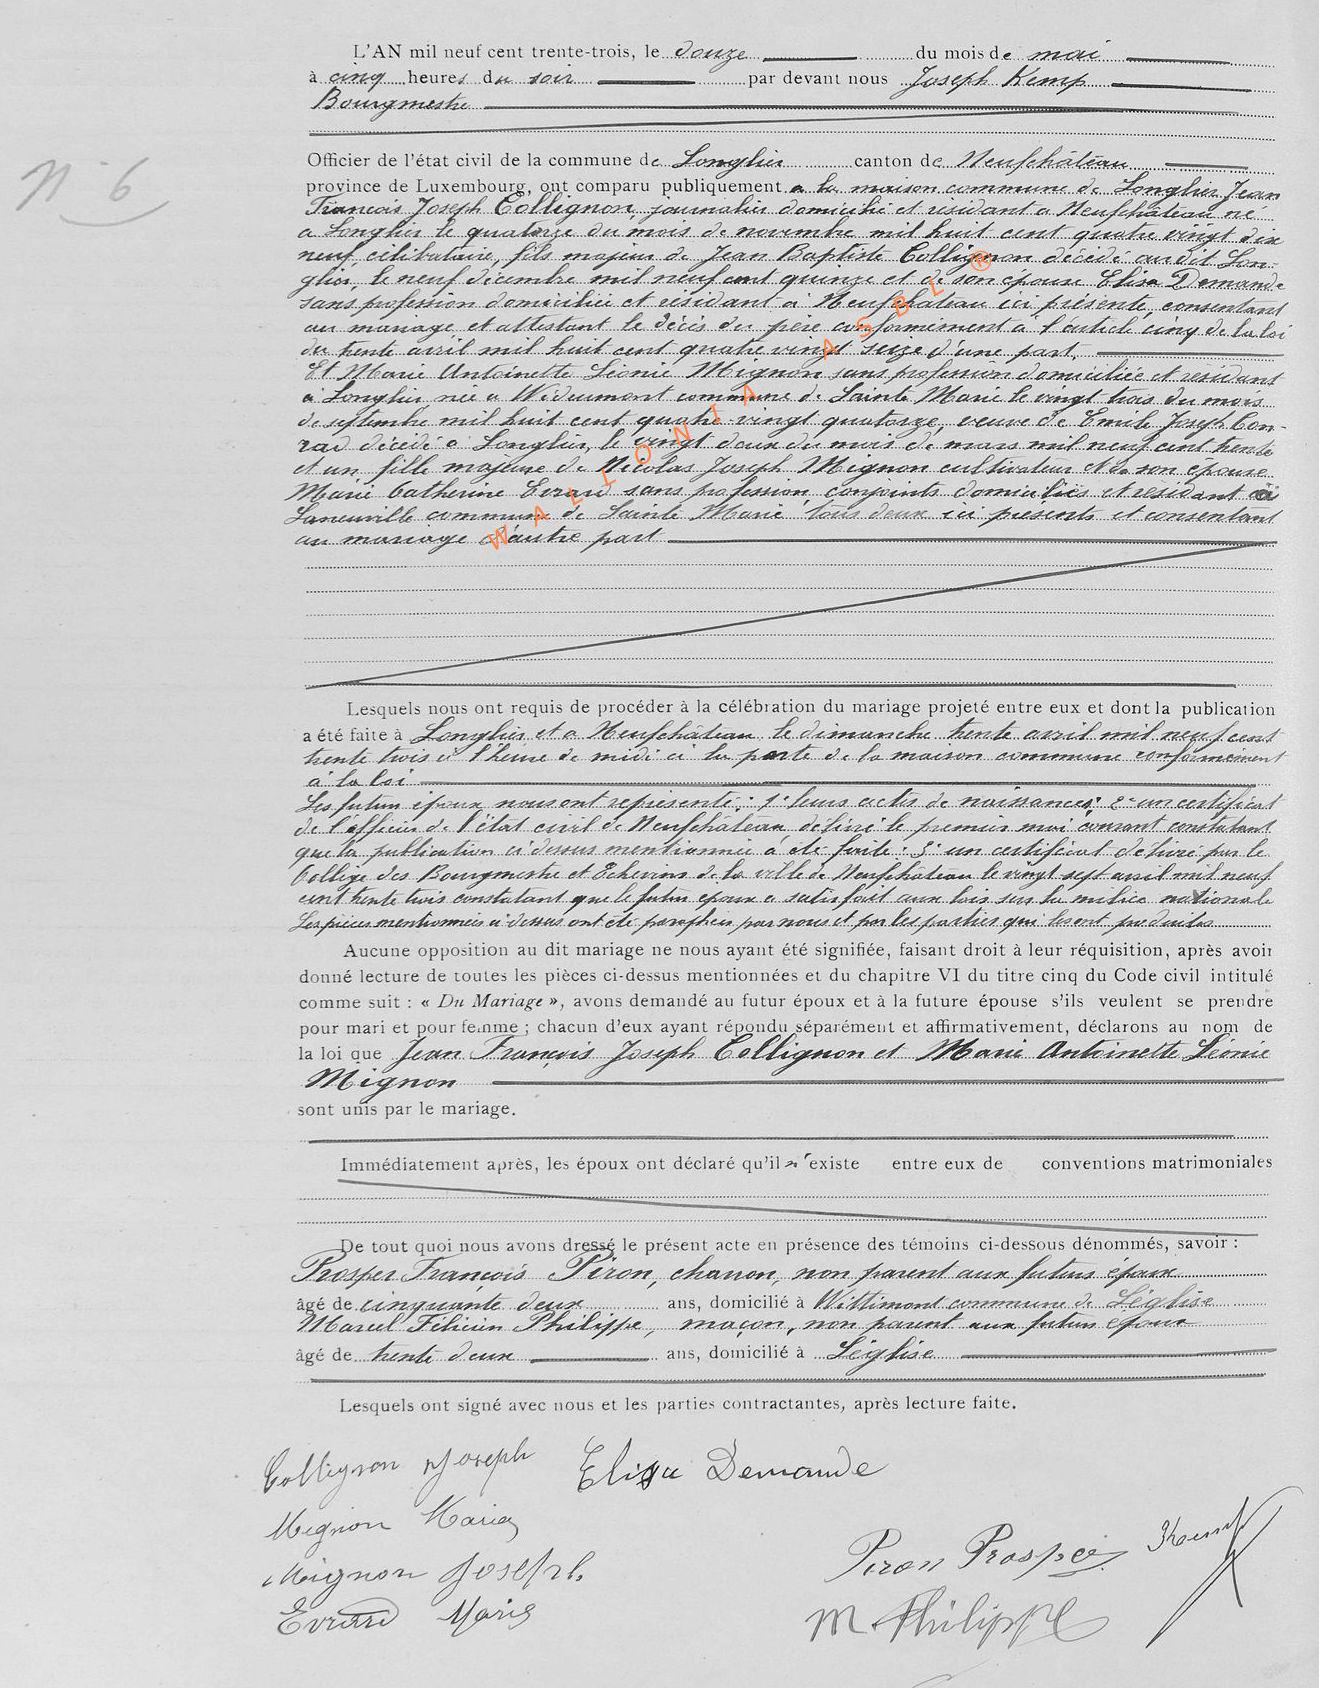 L'AN mil neuf cent trente-trois, le douze du mois de mai
à cinq heures du soir par devant nous Joseph Kemp
Bourgmestre
N° 6
Officier de l'état civil de la commune de Longlier canton de Neufchâteau
province de Luxembourg, ont comparu publiquement a la maison commune de Longlier Jean
François Joseph Collignon, journalier domicilié et résidant a Neufchâteau né
a Longlier le quatorze du mois de novembre mil huit cent quatre vingt dix
neuf célibataire, fils majeur de Jean Baptiste Collignon décédé au dit Lon-
glier, le neuf décembre mil neuf cent quinze et de son épouse Elisa Demande
sans profession domiciliée et résidant à Neufchateau ici présente, consentant
au mariage et attestant le décès du père conformément a l'article cinq de la loi
du trente avril mil huit cent quatre vingt seize d'une part.
Et Marie Antoinette Léonie Mignon sans profession domiciliée et résidant
a Longlier née a Wideumont commune de Sainte Marie le vingt trois du mois
de septembre mil huit cent quatre-vingt quatorze, veuve de Emile Joseph Con-
rad décédé à Longlier, le vingt deux du mois de mars mil neuf cent trente
et un fille majeure de Nicolas Joseph Mignon cultivateur et de son épouse
Marie Catherine Evrard sans profession conjoints domiciliés et résidant à
Laneuville commune de Sainte Marie tous deux ici présents et consentant
au mariage d'autre part
WALLONIA ASBL ®
Lesquels nous ont requis de procéder à la célébration du mariage projeté entre eux et dont la publication
a été faite à Longlier et a Neufchâteau le dimanche trente avril mil neuf cent
trente trois à l'heure de midi à la porte de la maison commune conformément
à la loi
Les futurs époux nous ont représenté : 1° leurs actes de naissances; 2° un certificat
de l'officier de l'état civil de Neufchâteau, délivré le premier mai courant constatant
que la publication ci dessus mentionnée a été faite : 3° un certificat délivré par le
Collège des Bourgmestre et Echevins de la ville de Neufchateau le vingt sept avril mil neuf
cent trente trois constatant que le futur époux a satisfait aux lois sur la milice nationale
Les pièces mentionnées ci dessus ont été paraphées par nous et par les parties qui les ont produites
Aucune opposition au dit mariage ne nous ayant été signifiée, faisant droit à leur réquisition, après avoir
donné lecture de toutes les pièces ci-dessus mentionnées et du chapitre VI du titre cinq du Code civil intitulé
comme suit : « Du Mariage », avons demandé au futur époux et à la future épouse s'ils veulent se prendre
pour mari et pour femme ; chacun d'eux ayant répondu séparément et affirmativement, déclarons au nom de
la loi que Jean François Joseph Collignon et Marie Antoinette Léonie
Mignon
sont unis par le mariage.
Immédiatement après, les époux ont déclaré qu'il n'existe entre eux de conventions matrimoniales
De tout quoi nous avons dressé le présent acte en présence des témoins ci-dessous dénommés, savoir :
Prosper François Piron, charron, non parent aux futurs époux
âgé de cinquante deux ans, domicilié à Wittimont commune de Léglise
Marcel Félicien Philippe, maçon, non parent aux futurs époux
âgé de trente deux ans, domicilié à Léglise
Lesquels ont signé avec nous et les parties contractantes, après lecture faite.
Collignon Joseph Elisa Demande
Mignon Maria
Piron Prosper Kemp
Mignon Joseph.
Evrard Marie
M Philippe